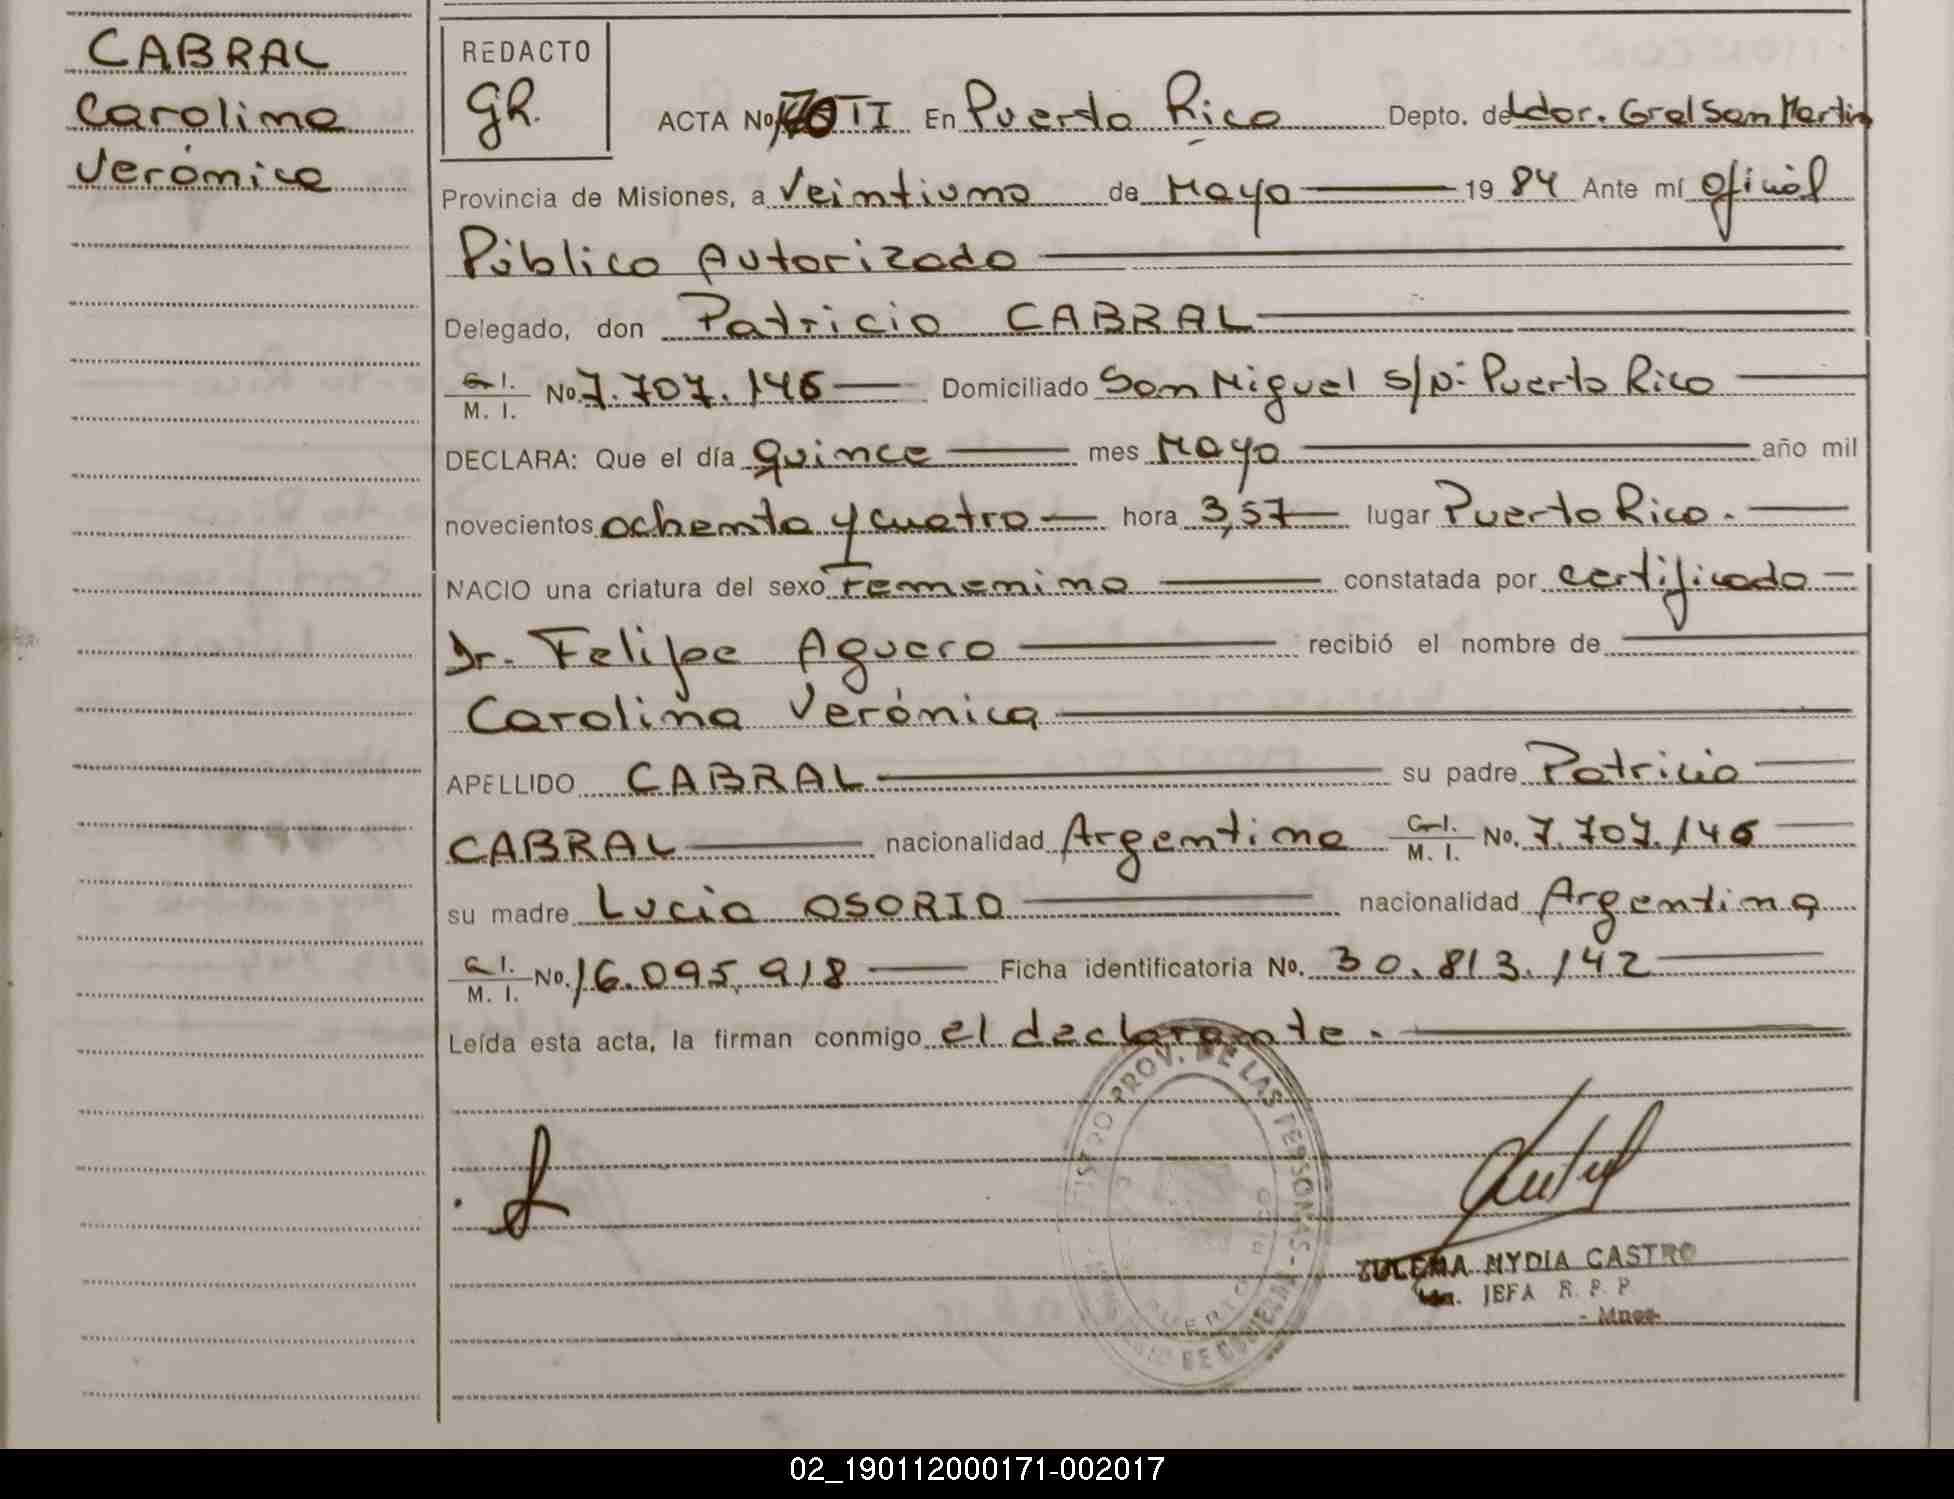 CABRAL
Carolina
Verónica
REDACTO
gR.
ACTA No TI En Puerto Rico Depto. de Ldor. Gral San Martin
Provincia de Misiones, a Veintiuno de Mayo 19 84 Ante mí oficial
Público Autorizado
Delegado, don Patricio CABRAL
C. I. / M. I. No. 7.707.146 Domiciliado San Miguel s/N: Puerto Rico
DECLARA: Que el día quince mes Mayo año mil
novecientos ochenta y cuatro hora 3,57 lugar Puerto Rico.
NACIO una criatura del sexo Femenino constatada por certificado
Dr. Felipe Aguero recibió el nombre de
Carolina Verónica
APELLIDO CABRAL su padre Patricio
CABRAL nacionalidad Argentina C. I. / M. I. No. 7.707.146
su madre Lucia OSORIO nacionalidad Argentina
C. I. / M. I. No. 16.095.918 Ficha identificatoria No. 30.813.142
Leída esta acta, la firman conmigo el declarante.
PROV. DE LAS PERSONAS
PUERTO RICO
ZULEMA NYDIA CASTRO
JEFA R. P. P
- Mnes-
02_190112000171-002017